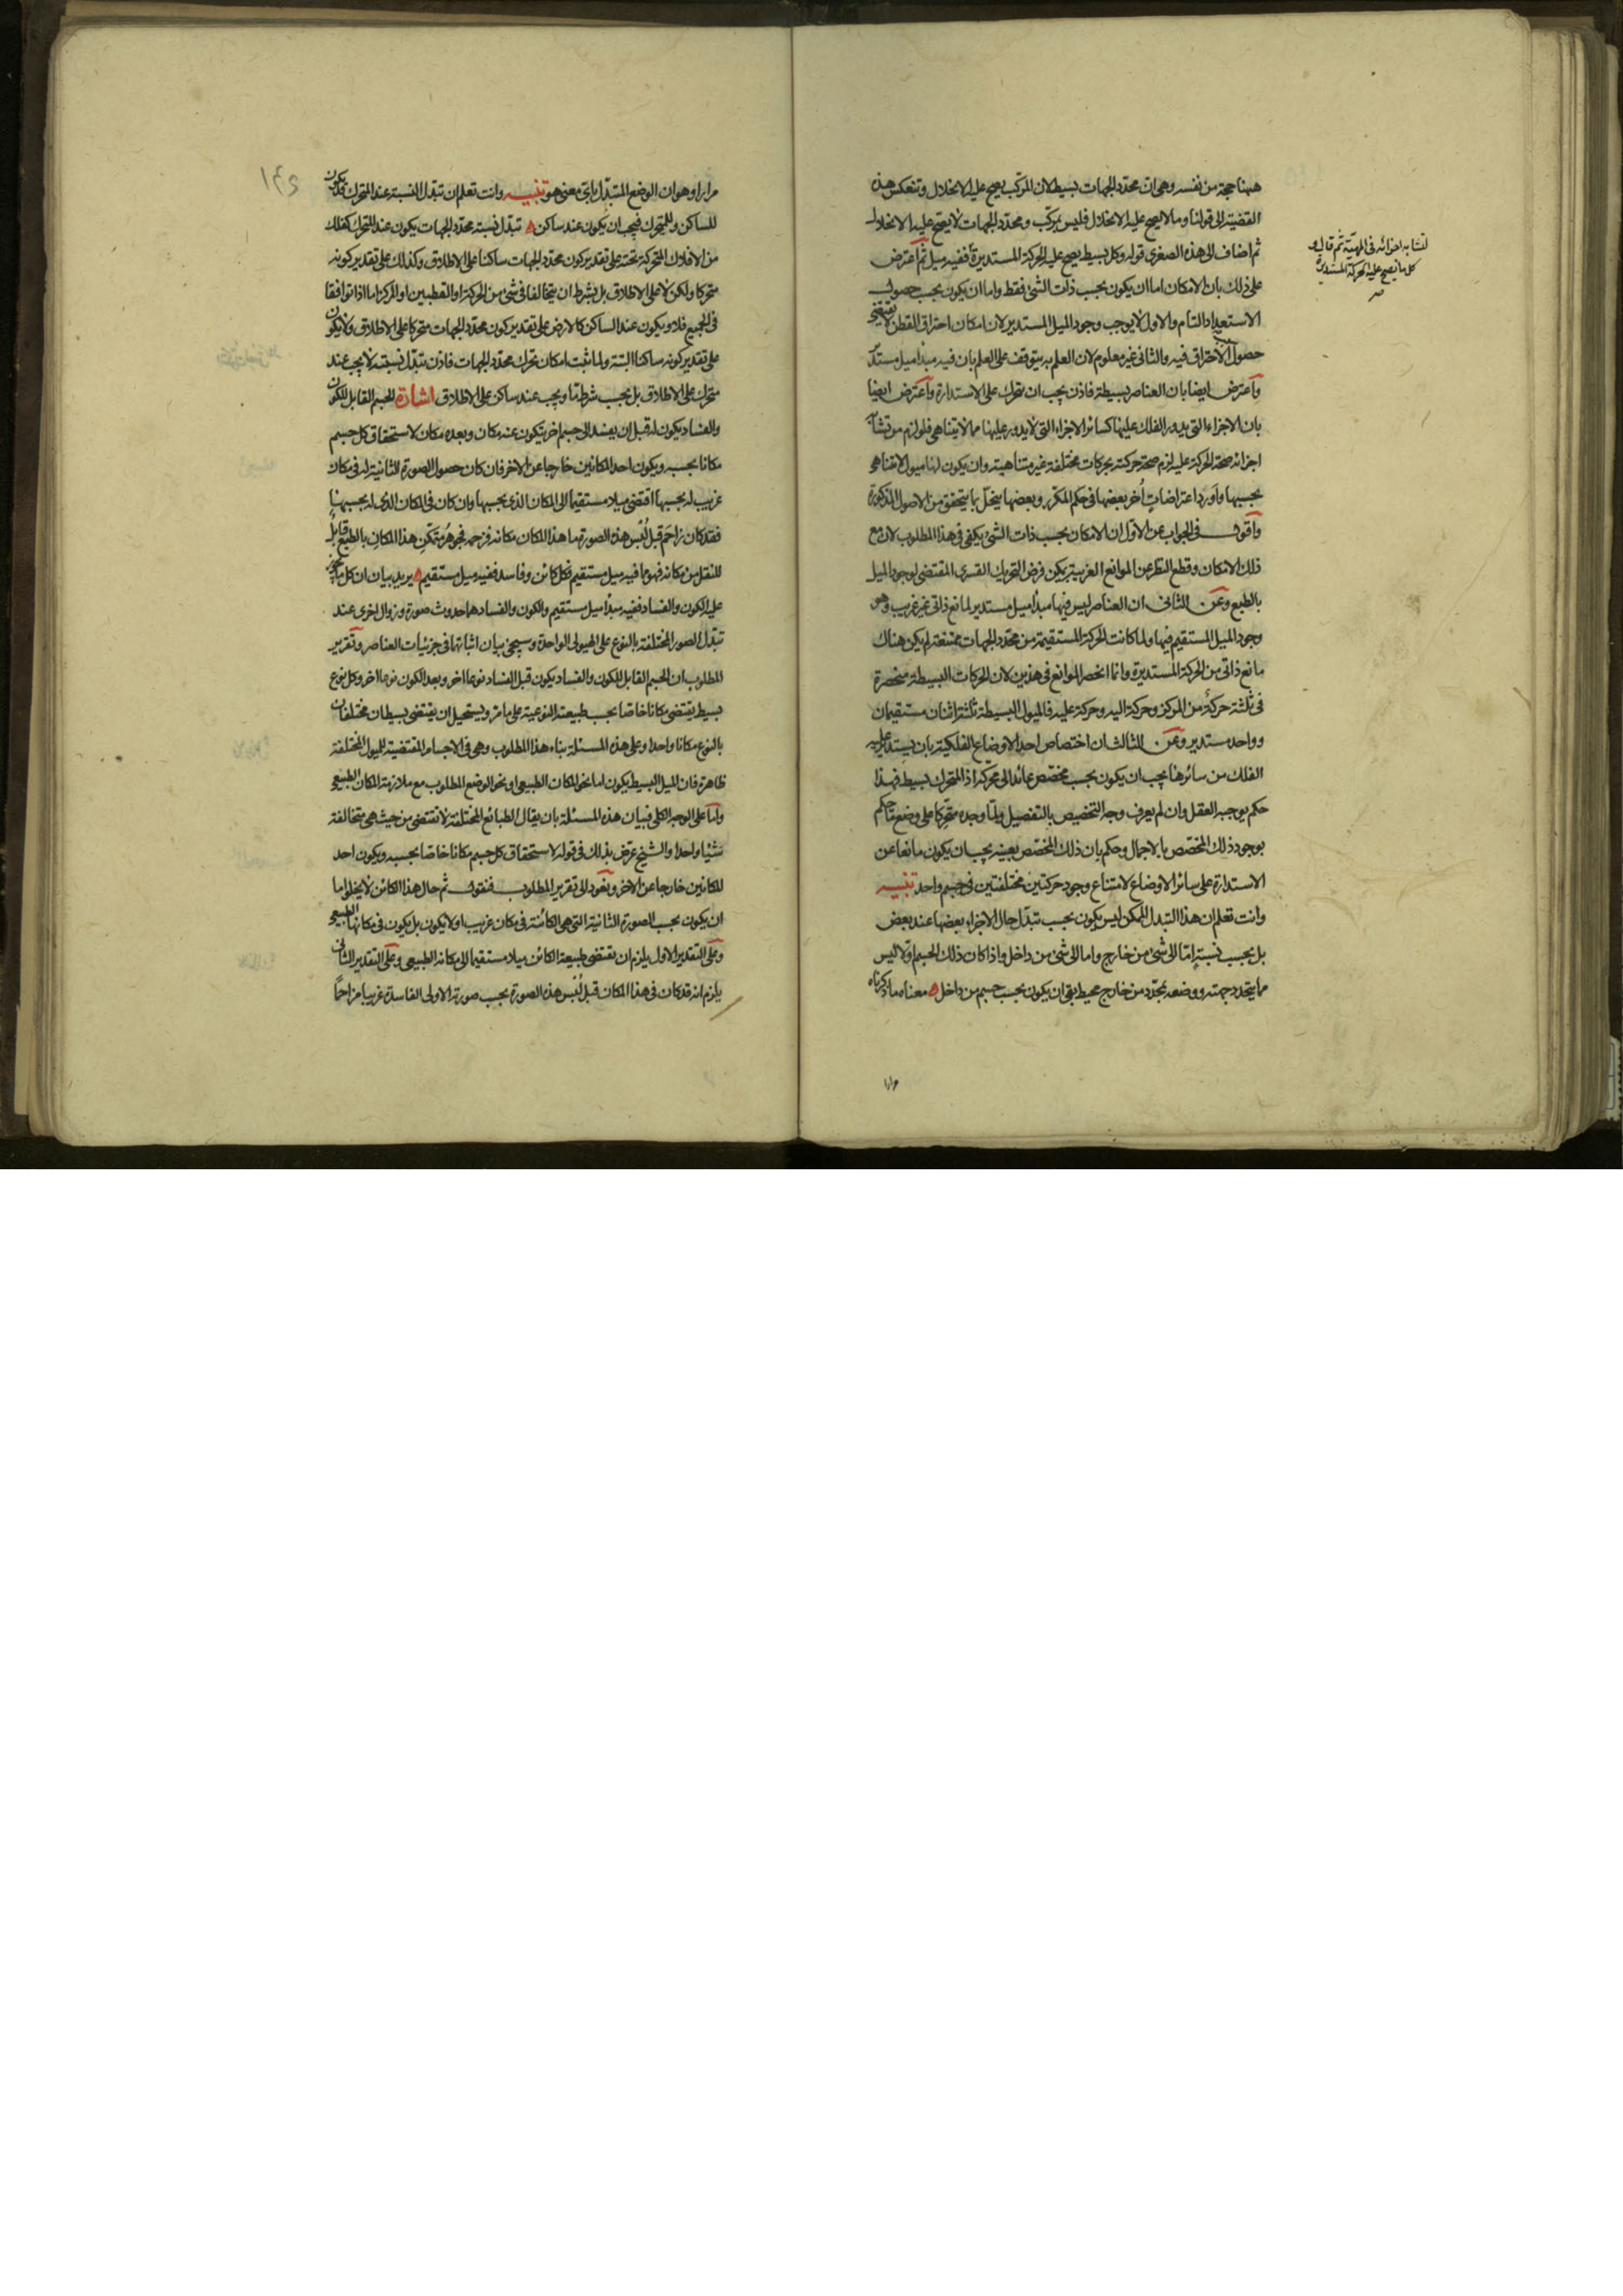 ههنا حجة من نفسه وهى ان محدد الجهات بسيط لان المركب يصح عليه الانحلال وتنعكس هذه
القضية الى قولنا وما لا يصح عليه الانحلال فليس بمركب ومحدد الجهات لا يصح عليه الانحلال
ثم اضاف الى هذه الصغرى قوله وكل بسيط يصح عليه الحركة المستديرة ففيه ميل ثم اعترض
على ذلك بان الامكان اما ان يكون بحسب ذات الشئ فقط واما ان يكون بحسب حصول
الاستعداد التام والاول لا يوجب وجود الميل المستدير لان امكان احتراق القطن لا يقتضى
حصول الاحتراق فيه والثانى غير معلوم لان العلم به يتوقف على العلم بان فيه مبدأ ميل مستدير
واعترض ايضا بان العناصر بسيطة فاذن يجب ان يتحرك على الاستدارة واعترض ايضا
بان الاجزاء التى يدور الفلك عليها كسائر الاجزاء التى لا يدور عليها مما لا يتناهى فلو لزم من تشابه
اجزائه صحة الحركة عليه لزم صحة حركته بحركات مختلفة غير متناهية وان يكون لها ميول لا تتناهى
بحسبها واورد اعتراضات أخر بعضها فى حكم المكرر وبعضها ينحل بما يتحقق من الاصول المذكورة
واقول فى الجواب عن الاول ان الامكان بحسب ذات الشئ يكفى فى هذا المطلوب لان مع
ذلك الامكان وقطع النظر عن الموانع الغريبة يمكن فرض التحريك القسرى المقتضى لوجود الميل
بالطبع وعن الثانى ان العناصر ليس فيها مبدأ ميل مستدير لمانع ذاتى غير غريب وهو
وجود الميل المستقيم فيها ولما كانت الحركة المستقيمة من محدد الجهات ممتنعة لم يكن هناك
مانع ذاتى من الحركة المستديرة وانما انحصر الموانع فى هذين لان الحركات البسيطة منحصرة
فى ثلثة حركة من المركز وحركة اليه وحركة عليه فالميول البسيطة ثلثة اثنان مستقيمان
وواحد مستدير وعن الثالث ان اختصاص احد الاوضاع الفلكية بان يستدير عليه
الفلك من سائرها يجب ان يكون بحسب مخصص عائد الى محركه اذ المتحرك بسيط فهذا
حكم يوجبه العقل وان لم يعرف وجه التخصيص بالتفصيل ولما وجده متحركا على وضع ما حكم
بوجود ذلك المخصص بالاجمال وحكم بان ذلك المخصص بعينه يجب ان يكون مانعا عن
الاستدارة على سائر الاوضاع لامتناع وجود حركتين مختلفتين فى جسم واحد تنبيه
وانت تعلم ان هذا التبدل الممكن ليس يكون بحسب تبدل حال الاجزاء بعضها عند بعض
بل بحسب نسبته اما الى شئ من خارج واما الى شئ من داخل واذا كان ذلك الجسم اولا ليس
مما يتحدد جهته ووضعه بمحدد من خارج محيط بقى ان يكون بحسب جسم من داخل معناه ما ذكرناه
مرارا
لتشابه اجزائه فى المهية ثم قال و
كل ما يصح عليه الحركة المستديرة
صح
مرارا وهو ان الوضع المتبدل باى معنى هو تنبيه وانت تعلم ان تبدل النسبة عند المتحرك قد يكون
للساكن والمتحرك فيجب ان يكون عند ساكن تبدل نسبة محدد الجهات يكون عند المتحرك كفلك
من الافلاك المتحركة تحته على تقدير كون محدد الجهات ساكنا على الاطلاق وكذلك على تقدير كونه
متحركا ولكن لا على الاطلاق بل بشرط ان يتخالفا فى شئ من الحركة او القطبين او المركز اما اذا توافقا
فى الجميع فلا ويكون عند الساكن كالارض على تقدير كون محدد الجهات متحركا على الاطلاق ولا يكون
على تقدير كونه ساكنا البتة ولما ثبت امكان تحرك محدد الجهات فاذن تبدل نسبته لا يجب عند
متحرك على الاطلاق بل يجب بشرط ما ويجب عند ساكن على الاطلاق اشارة الجسم القابل للكون
والفساد يكون له قبل ان يفسد الى جسم اخر يتكون عنه مكان وبعده مكان لاستحقاق كل جسم
مكانا بحسبه ويكون احد المكانين خارجا عن الاخر فان كان حصول الصورة الثانية له فى مكان
غريب له بحسبها اقتضى ميلا مستقيما الى المكان الذى بحسبها وان كان فى المكان الذى له بحسبها
فقد كان زاحم قبل لبس هذه الصورة ما هذا المكان مكانه فزحمه فجوهر متمكن هذا المكان بالطبع قابل
للنقل من مكانه فهو مما فيه ميل مستقيم فكل كائن وفاسد ففيه ميل مستقيم يريد بيان ان كل ما يجوز
عليه الكون والفساد ففيه مبدأ ميل مستقيم والكون والفساد هما حدوث صورة وزوال اخرى عند
تبدل الصور المختلفة بالنوع على الهيولى الواحدة وسيجئ بيان اثباتها فى جزئيات العناصر وتقرير
المطلوب ان الجسم القابل للكون والفساد يكون قبل الفساد نوعا اخر وبعد الكون نوعا اخر وكل نوع
بسيط يقتضى مكانا خاصا بحسب طبيعته النوعية على ما مر ويستحيل ان يقتضى بسيطان مختلفان
بالنوع مكانا واحدا وعلى هذه المسئلة بناء هذا المطلوب وهى فى الاجسام المقتضية للميول المختلفة
ظاهرة فان الميل البسيط يكون اما نحو المكان الطبيعى او نحو الوضع المطلوب مع ملازمة المكان الطبيعى
واما على الوجه الكلى فبيان هذه المسئلة بان يقال الطبائع المختلفة لا تقتضى من حيث هى متخالفة
شيئا واحدا والشيخ عرض بذلك فى قوله لاستحقاق كل جسم مكانا خاصا بحسبه ويكون احد
المكانين خارجا عن الاخر ونعود الى تقرير المطلوب فنقول ثم حال هذا الكائن لا يخلو اما
ان يكون بحسب الصورة الثانية التى هى الكائنة فى مكان غريب او لا يكون بل يكون فى مكانها الطبيعى
وعلى التقدير الاول يلزم ان تقتضى طبيعة الكائن ميلا مستقيما الى مكانه الطبيعى وعلى التقدير الثانى
يلزم انه قد كان فى هذا المكان قبل لبس هذه الصورة بحسب صورته الاولى الفاسدة غريبا مزاحما